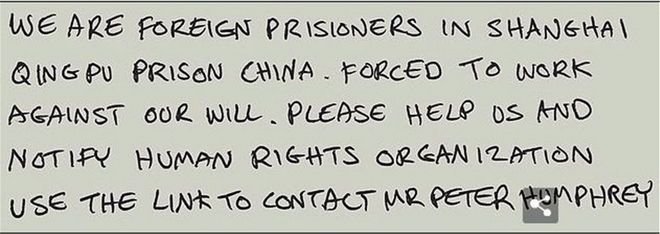 WE ARE FOREIGN PRISIONERS IN SHANGHAI
QINGPU PRISON CHINA. FORCED TO WORK
AGAINST OUR WILL. PLEASE HELP US AND
NOTIFY HUMAN RIGHTS ORGANIZATION
USE THE LINK TO CONTACT MR PETER HUMPHREY